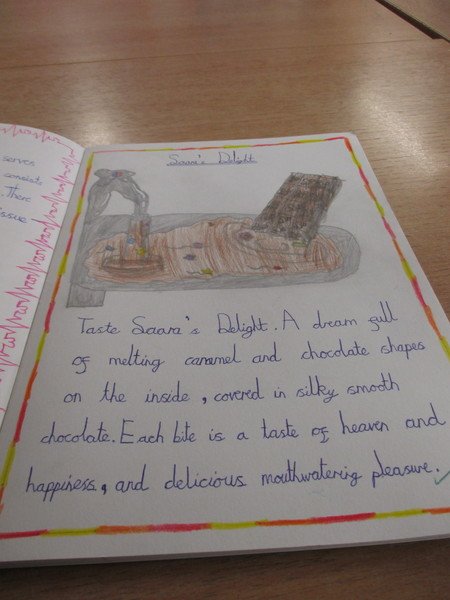 serves
consists
There
issue
Saara's Delight
Taste Saara's Delight. A dream full
of melting caramel and chocolate shapes
on the inside, covered in silky smooth
chocolate. Each bite is a taste of heaven and
happiness, and delicious mouthwatering pleasure.